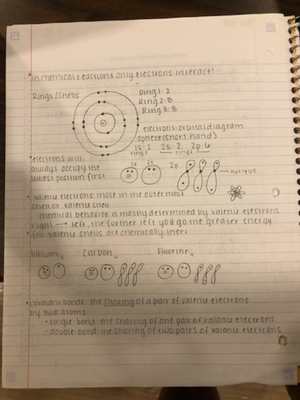 • in chemical reactions only electrons interact!
Rings/Shells
Ring 1: 2
Ring 2: 8
Ring 3: 8
electrons orbital diagram
sphere (short hand)
1s 2 2s 2 2p 6
ring 1 ring 2
• electrons will
always occupy the
lowest position first
1s 2s 2p
nucleus
• valence electrons: those in the outermost
shell or valence shell
chemical behavior is mostly determined by valence electrons
right → left, the further left you go the greater energy
full valence shells are chemically inert
Carbon Fluorine
• covalent bonds: the sharing of a pair of valence electrons
by two atoms
• single-bond: the sharing of one pair of valence electrons
• double-bond: the sharing of two pairs of valence electrons